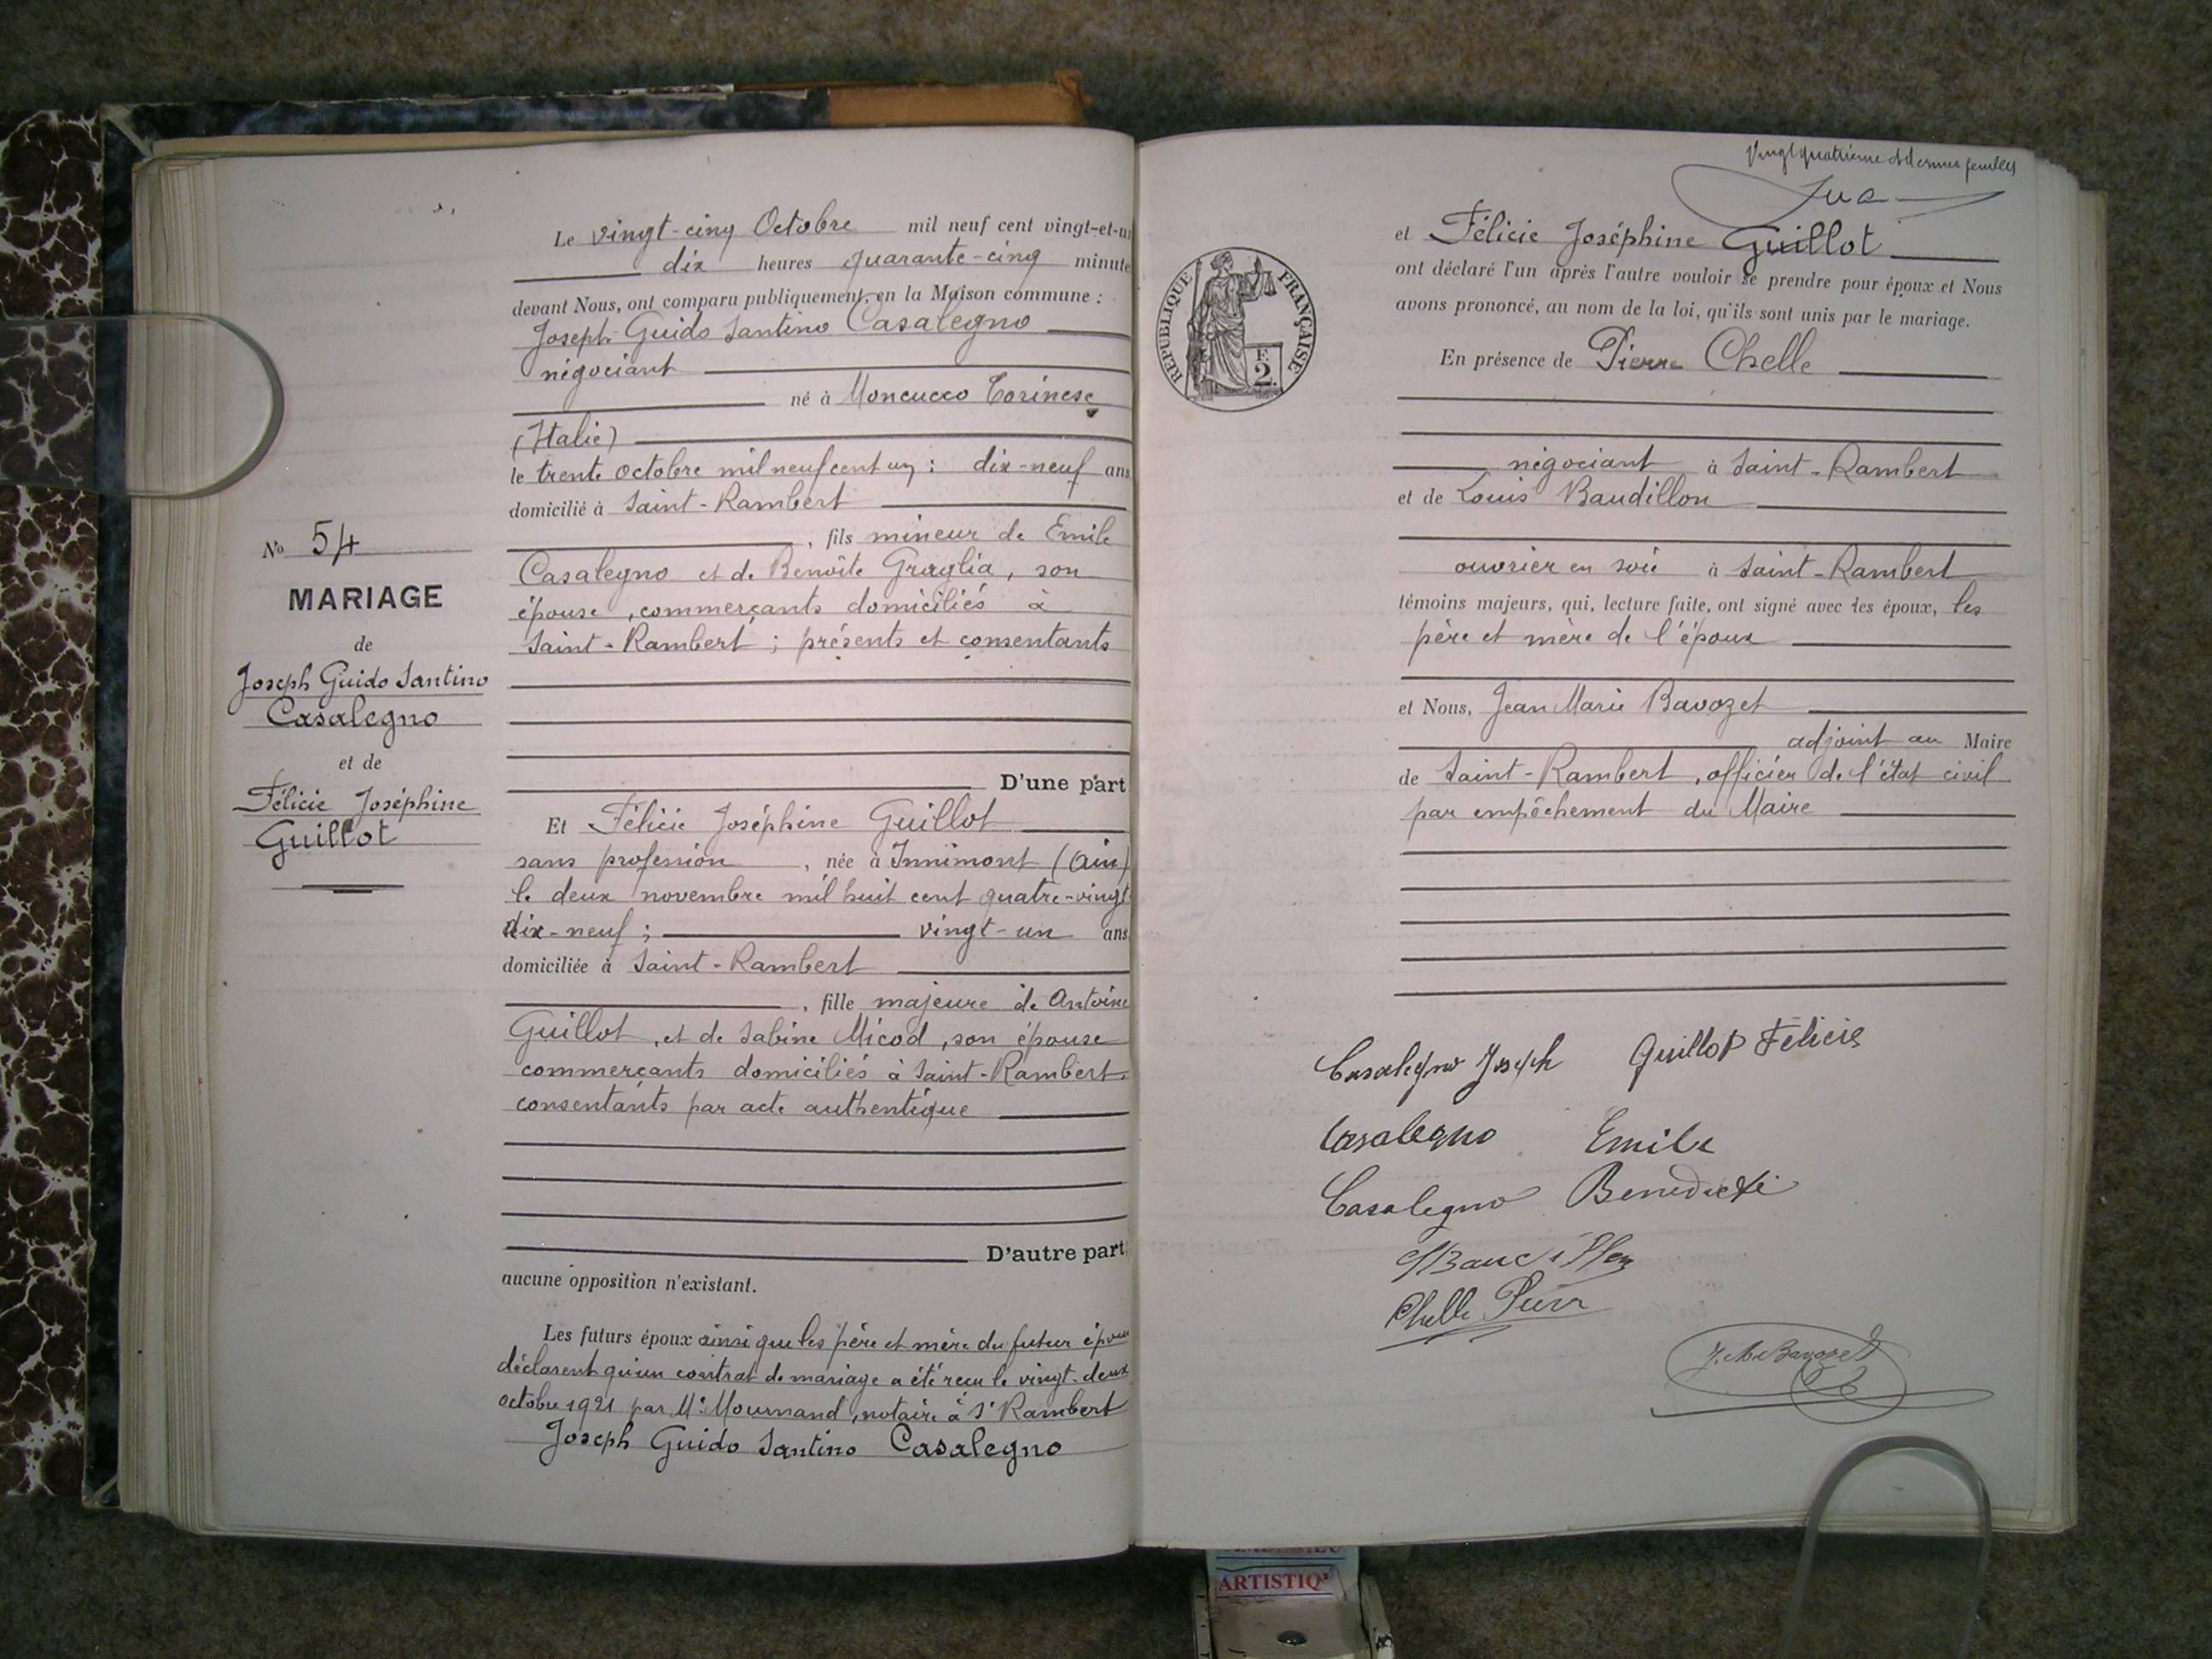 Le vingt-cinq Octobre mil neuf cent vingt-et-un
dix heures quarante-cinq minute
devant Nous, ont comparu publiquement, en la Maison commune :
Joseph Guido Santino Casalegno
négociant
né à Moncucco Torinese
(Italie)
le trente octobre mil neuf cent un ; dix-neuf ans
domicilié à Saint-Rambert
, fils mineur de Emile
Casalegno et de Benoîte Graglia, son
épouse, commerçants domiciliés à
Saint-Rambert ; présents et consentants
D'une part
Et Félicie Joséphine Guillot
sans profession , née à Innimont (Ain)
le deux novembre mil huit cent quatre-vingt
dix-neuf ; vingt-un ans
domiciliée à Saint-Rambert
, fille majeure de Antoine
Guillot, et de Sabine Micod, son épouse
commerçants domiciliés à Saint-Rambert,
consentants par acte authentique
D'autre part
aucune opposition n'existant.
Les futurs époux ainsi que les père et mère du futur époux
déclarent qu'un contrat de mariage a été reçu le vingt-deux
octobre 1921 par Me Mournand, notaire à St Rambert
Joseph Guido Santino Casalegno
No 54
MARIAGE
de
Joseph Guido Santino
Casalegno
et de
Félicie Joséphine
Guillot
Vingt quatrième et dernier feuillet
et Félicie Joséphine Guillot
ont déclaré l'un après l'autre vouloir se prendre pour époux et Nous
avons prononcé, au nom de la loi, qu'ils sont unis par le mariage.
RÉPUBLIQUE FRANÇAISE
F.
2.
En présence de Pierre Chelle
négociant à Saint-Rambert
et de Louis Baudillon
ouvrier en soie à Saint-Rambert
témoins majeurs, qui, lecture faite, ont signé avec les époux, les
père et mère de l'époux
et Nous, Jean Marie Bavozet
adjoint au Maire
de Saint-Rambert, officier de l'état civil
par empêchement du Maire
Casalegno Joseph Guillot Félicie
Casalegno Emile
Casalegno Benedicte
Baudillon
Chelle Pierre
J. M. Bavozet
ARTISTIQ